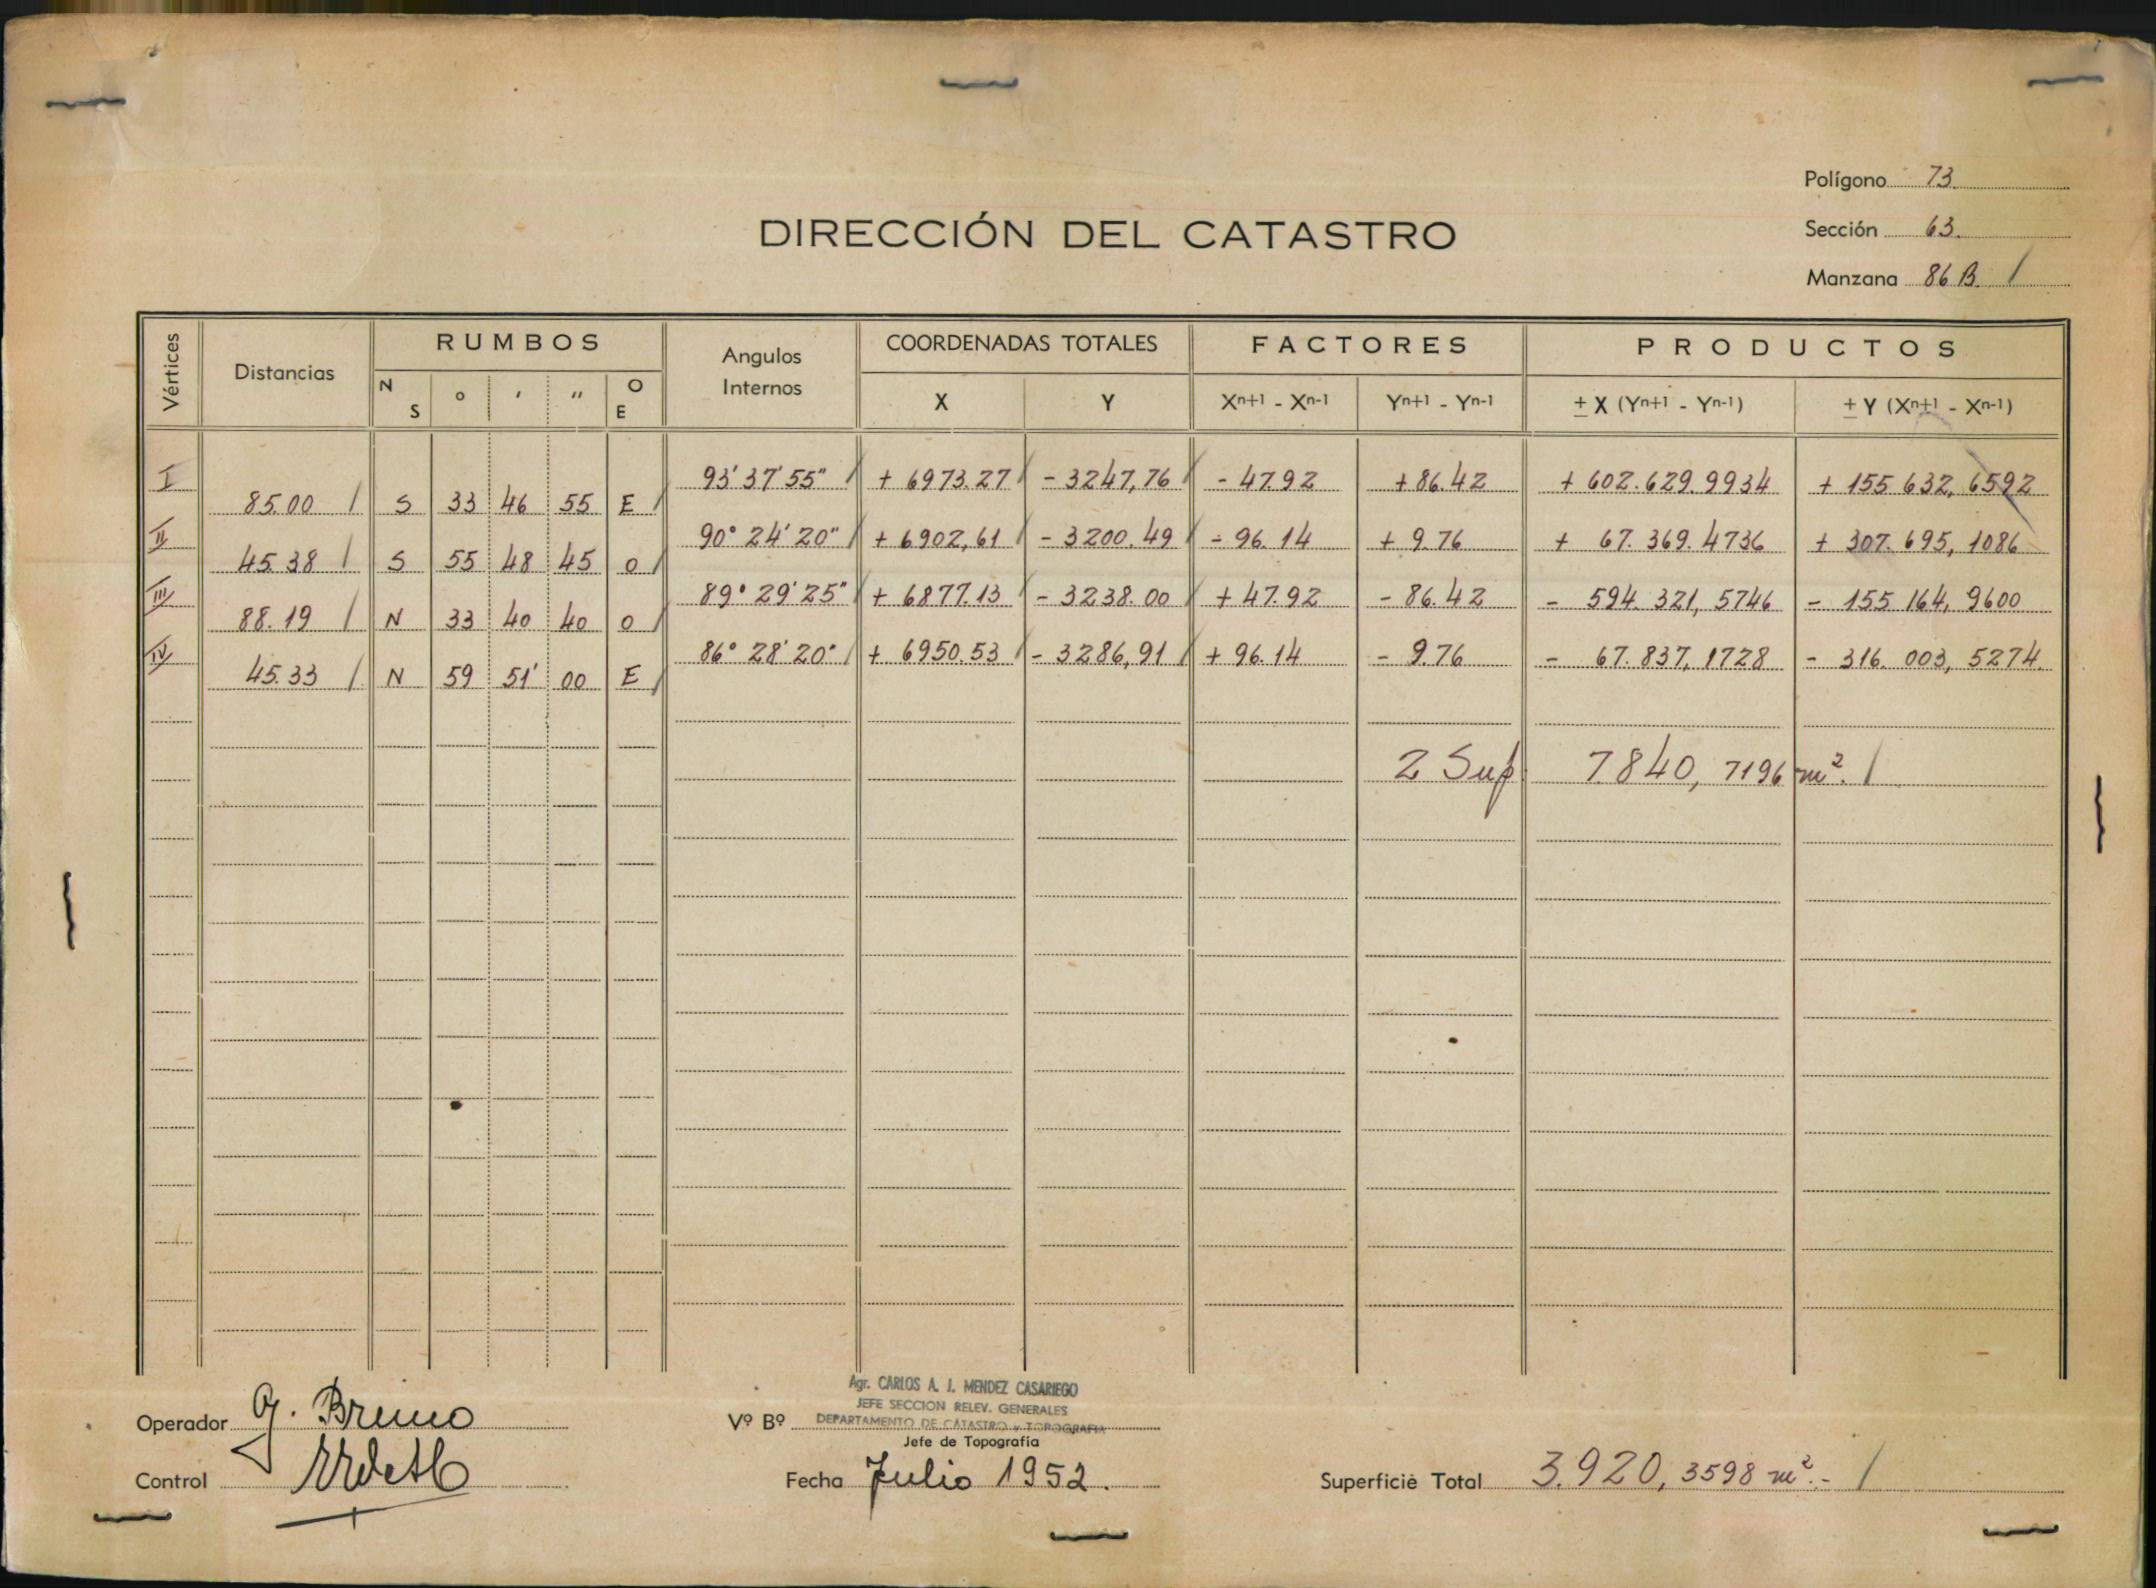 Polígono 73.
DIRECCIÓN DEL CATASTRO
Sección 63.
Manzana 86 B. /
Vértices Distancias RUMBOS Angulos Internos COORDENADAS TOTALES FACTORES PRODUCTOS
N S ° ' '' O E X Y Xn+1 - Xn-1 Yn+1 - Yn-1 ± X (Yn+1 - Yn-1) ± Y (Xn+1 - Xn-1)
I 93° 37' 55" / + 6973.27 / - 3247,76 / - 47.92 + 86.42 + 602.629.9934 + 155 632, 6592
85.00 / S 33 46 55 E /
II 90° 24' 20" / + 6902,61 / - 3200.49 / - 96.14 + 9.76 + 67.369.4736 + 307.695, 1086
45.38 / S 55 48 45 O /
III 89° 29' 25" / + 6877.13 / - 3238.00 / + 47.92 - 86.42 - 594 321, 5746 - 155 164, 9600
88.19 / N 33 40 40 O /
IV 86° 28' 20" / + 6950.53 / - 3286,91 / + 96.14 - 9.76 - 67.837, 1728 - 316.003, 5274
45.33 / N 59 51' 00 E /
2 Sup. 7840, 7196 m². /
Agr. CARLOS A. J. MENDEZ CASARIEGO
JEFE SECCION RELEV. GENERALES
Operador G. Bruno Vº Bº DEPARTAMENTO DE CATASTRO y TOPOGRAFIA
Jefe de Topografía
Control Fecha Julio 1952. Superficie Total 3.920, 3598 m².- /